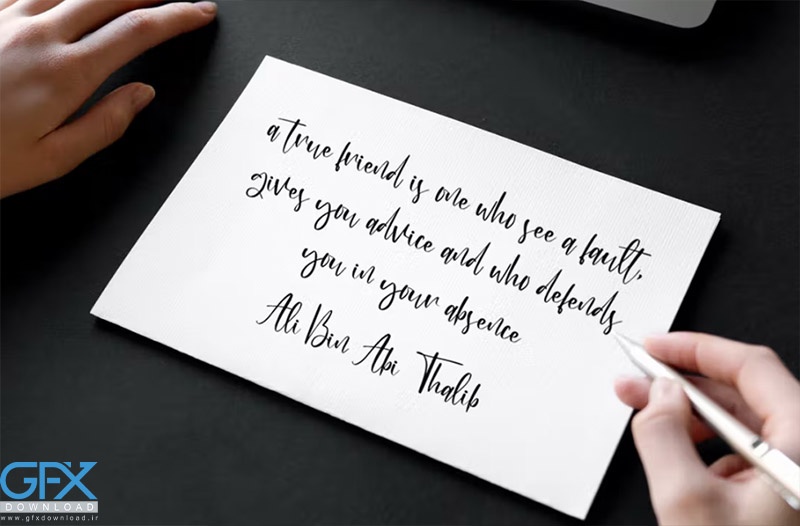 a true friend is one who see a fault,
gives you advice and who defends
you in your absence
Ali Bin Abi Thalib
GFX
DOWNLOAD
www.gfxdownload.ir